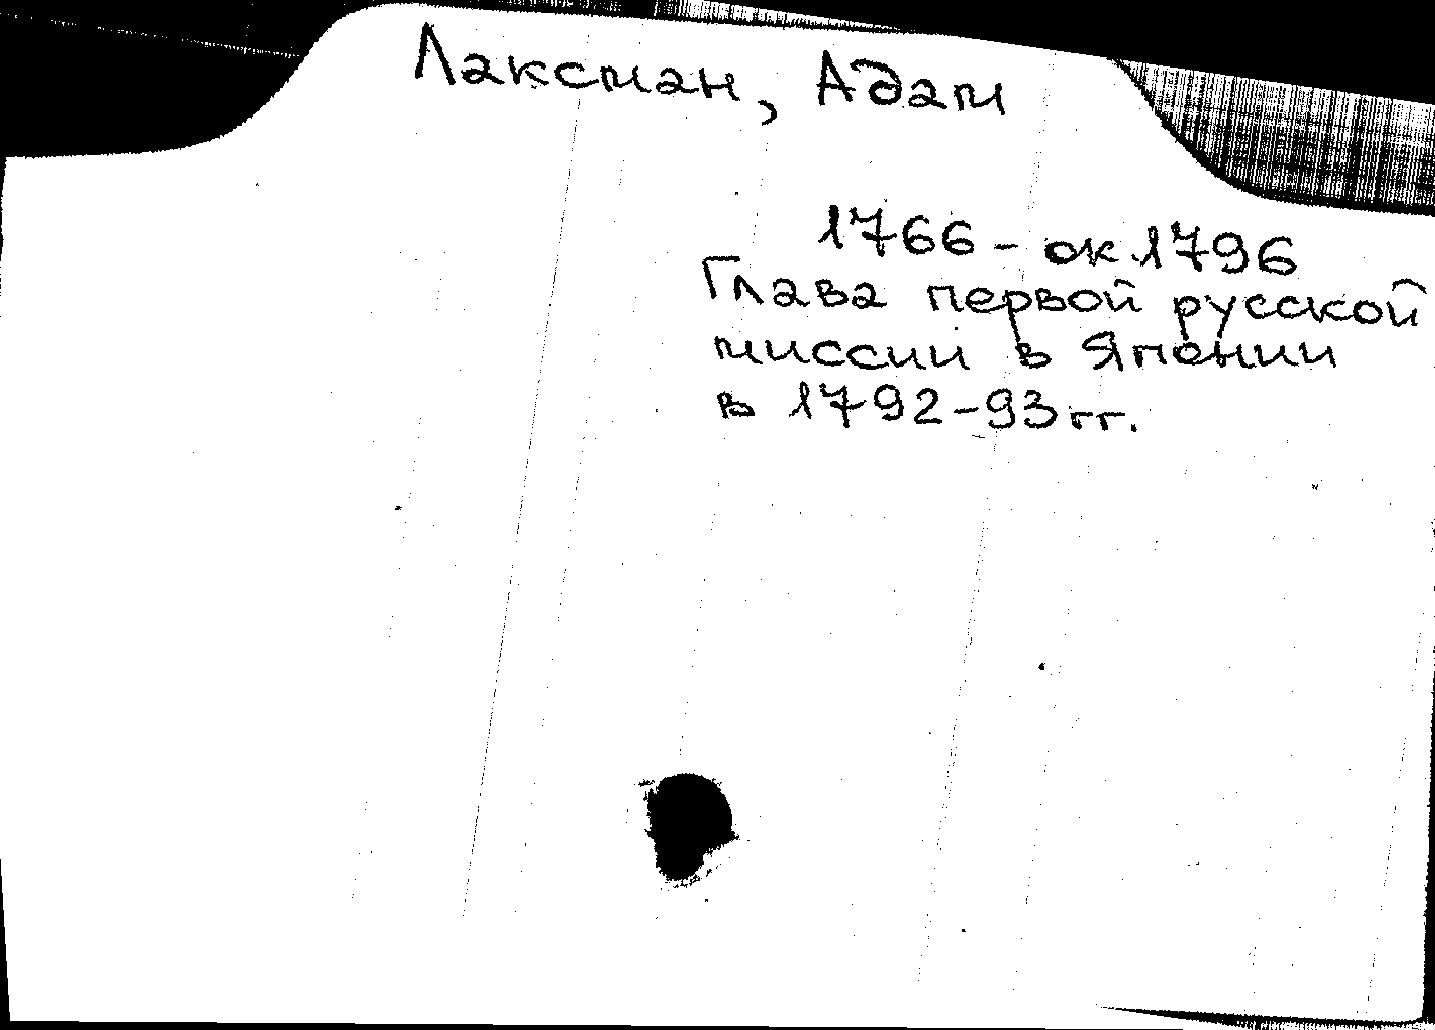 Лаксман, Адам
1766 - ок.1796
Глава первой русской
миссии в Японии
в 1792-93 гг.